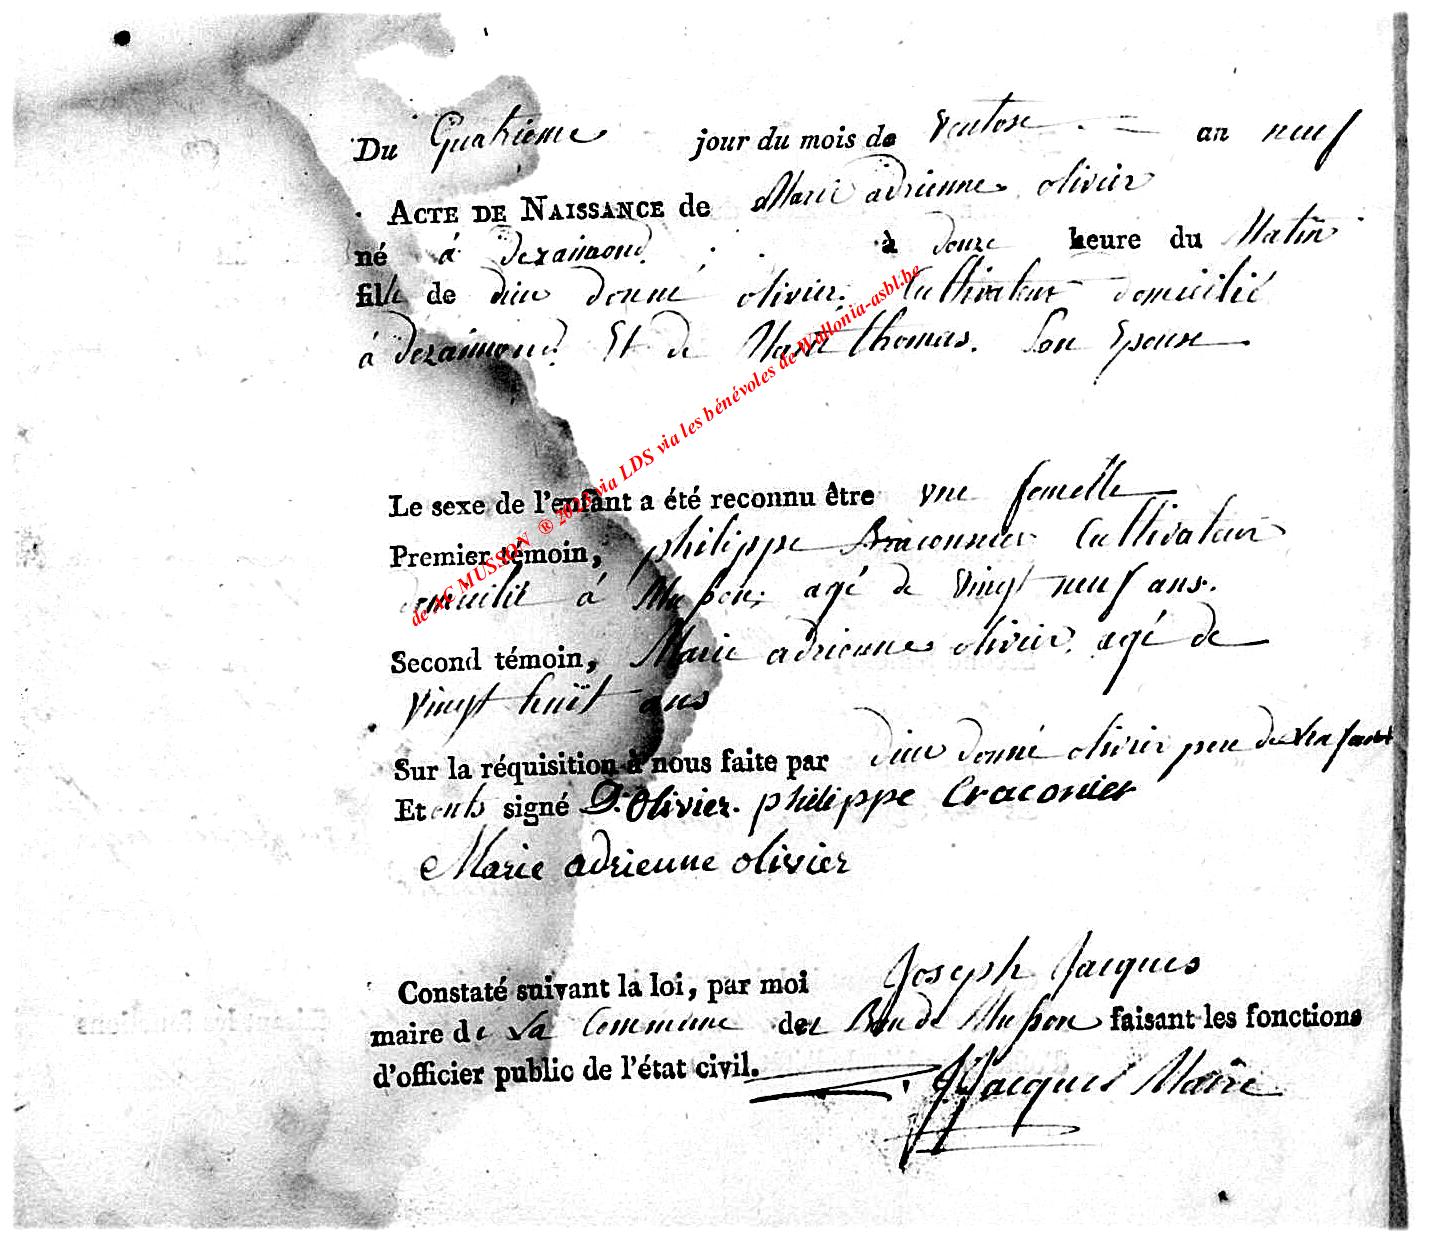 Du Quatrieme jour du mois de Ventose an neuf
ACTE DE NAISSANCE de Marie adrienne olivier
né á dezaimond. à douze heure du Matin
fille de dieu donné olivier. Cultivateur domicilié
á dezaimond. Et de Marie thomas. Son Epouse
Le sexe de l'enfant a été reconnu être vne femelle
Premier témoin, philippe Braconnier Cultivateur
domicilié á Musson, agé de Vingt neuf ans.
Second témoin, Marie adrienne olivier. agé de
Vingt huit ans
Sur la réquisition à nous faite par dieu donné olivier pere de
Et onts signé D. Olivier. philippe Craconier
Marie adrienne olivier
Constaté suivant la loi, par moi Joseph Jacques
maire de La Commune de Musson faisant les fonctions
d'officier public de l'état civil. J Jacques Maire
de MUSSON ® via LDS via les bénévoles de Wallonia-asbl.be